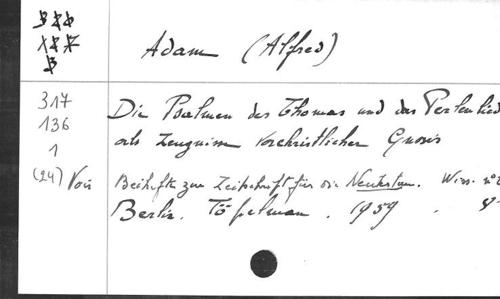 Adam (Alfred)
317
136
1
(24) Vois
Die Psalmen des Thomas und das Perlenlied
als Zeugnisse vorchristlicher Gnosis
Beihefte zur Zeitschrift für die Neutestam. Wiss. n°
Berlin. Töpelmann. 1959.